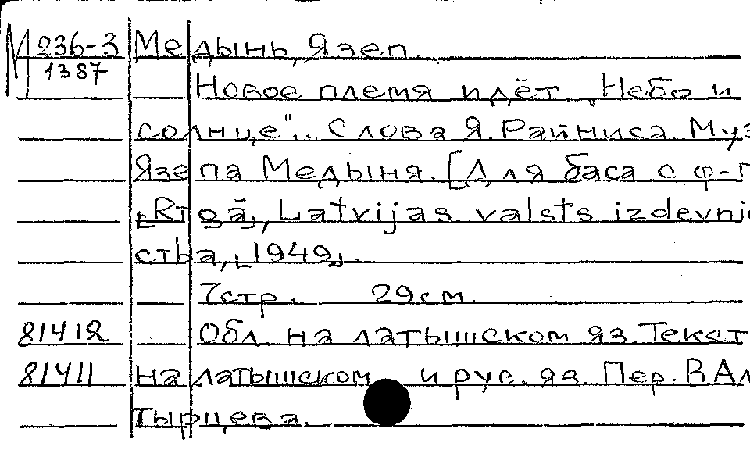 М 236-3 Медынь, Язеп.
1387 Новое племя идёт „Небо и
солнце“.. Слова Я. Райниса. Муз
Язепа Медыня. [Для баса с ф-п
[Rīgā], Latvijas valsts izdevnie
ства, [1949].
7стр. 29см.
81412 Обл. на латышском яз. Текст
81411 на латышском и рус. яз. Пер. В. Ал
тырцева.